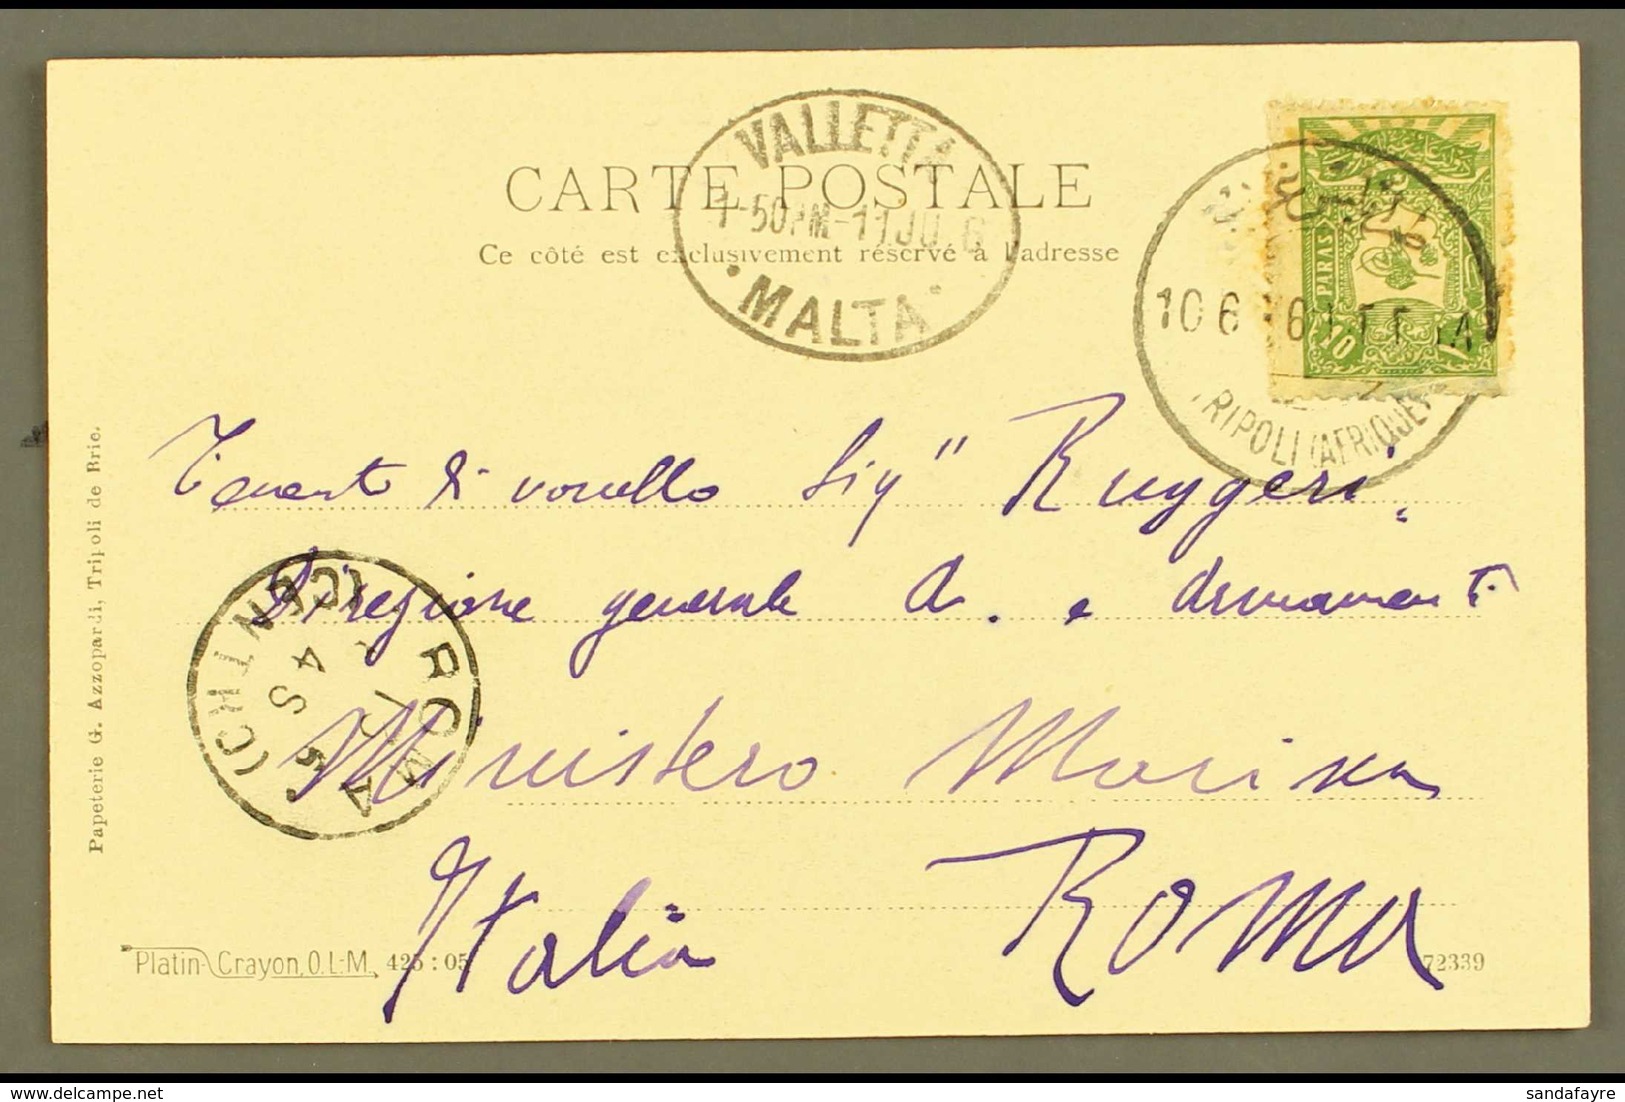 VALLETTA
1-50PM-11JU 6
MALTA
CARTE POSTALE
Ce côté est exclusivement réservé à l'adresse
PARAS
10
10 6
TRIPOLI (AFRIQUE)
Tenente di vascello Sig" Ruggeri
Direzione generale A. e armamenti
Ministero Marina
Italia Roma
ROMA (CENTRO)
Papeterie G. Azzopardi, Tripoli de Brie.
Platin-Crayon, O.L-M. 425 : 05
72339
sandafayre